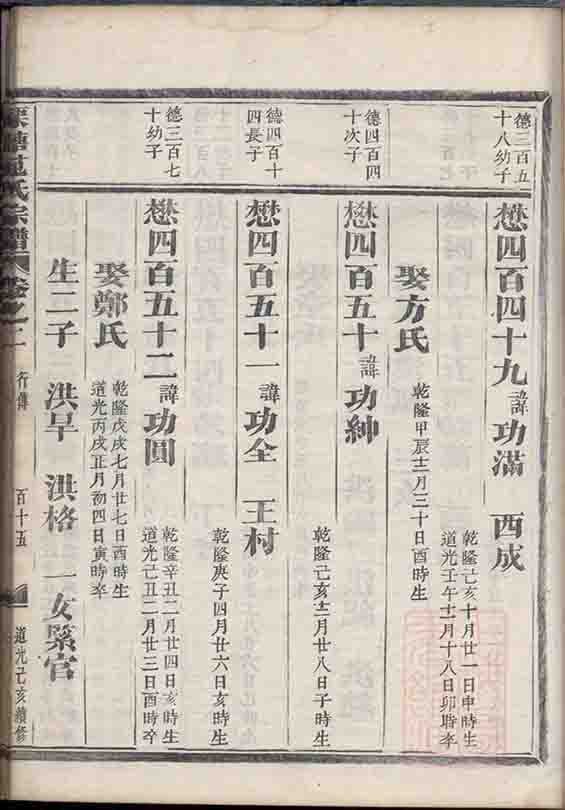 德三百五
十八幼子
懋四百四十九 諱功滿 西成
乾隆己亥十月廿一日申時生
道光壬午十一月十八日卯時卒
娶方氏
乾隆甲辰十二月三十日酉時生
德四百四
十次子
懋四百五十 諱功紳
乾隆己亥十二月廿八日子時生
德四百十
四長子
懋四百五十一 諱功全 王村
乾隆庚子四月廿六日亥時生
德三百七
十幼子
懋四百五十二 諱功圓
乾隆辛丑二月廿四日亥時生
道光己丑二月廿三日酉時卒
娶鄭氏
乾隆戊戌七月廿七日酉時生
道光丙戌正月初四日寅時卒
生二子 洪旱 洪格 一女緊官
范氏宗譜 卷之二 行傳 百十五 道光己亥續修